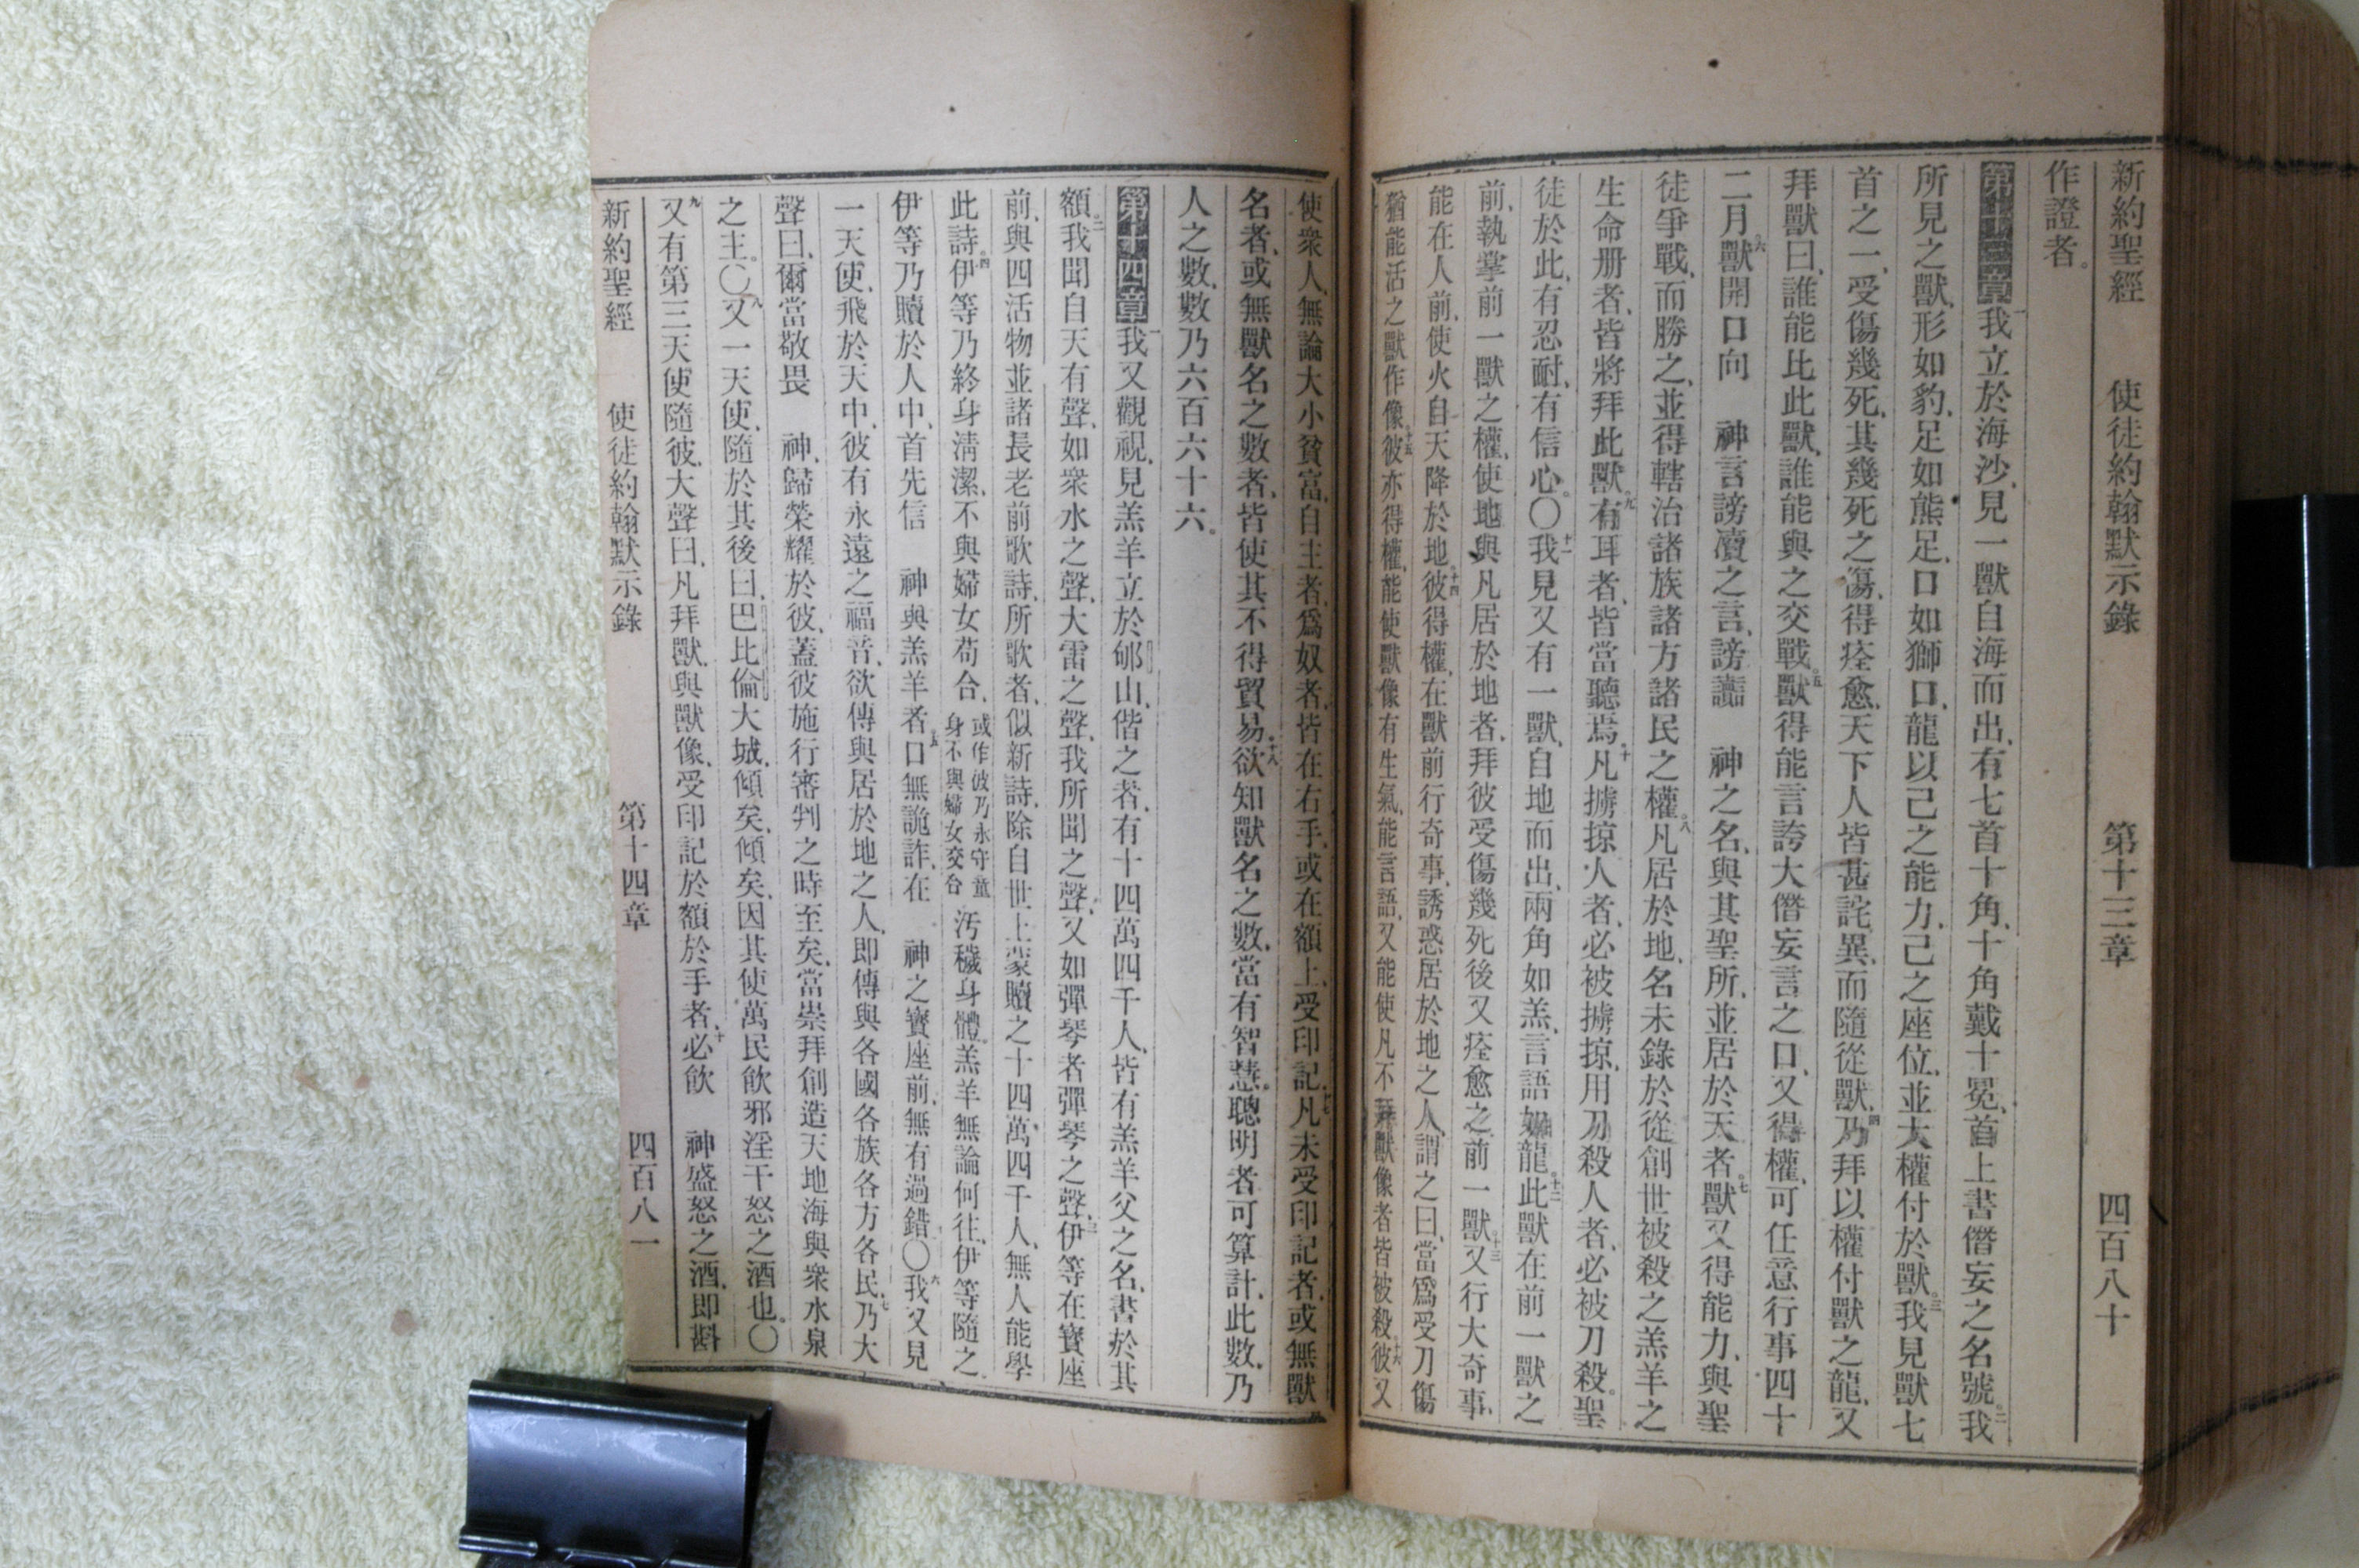 新約聖經　使徒約翰默示錄　第十三章　四百八十
作證者。
第十三章 一我立於海沙、見一獸自海而出、有七首十角、十角戴十冕、首上書僭妄之名號。二我
所見之獸、形如豹、足如熊足、口如獅口、龍以己之能力、己之座位、並大權付於獸。三我見獸七
首之一、受傷幾死、其幾死之傷、得痊愈、天下人皆甚詫異、而隨從獸、四乃拜以權付獸之龍、又
拜獸曰、誰能比此獸、誰能與之交戰。五獸得能言誇大僭妄言之口、又得權、可任意行事四十
二月。六獸開口向　神言謗瀆之言、謗讟　神之名、與其聖所、並居於天者。七獸又得能力、與聖
徒爭戰、而勝之、並得轄治諸族諸方諸民之權。八凡居於地、名未錄於從創世被殺之羔羊之
生命册者、皆將拜此獸。九有耳者、皆當聽焉。十凡擄掠人者、必被擄掠、用刀殺人者、必被刀殺。聖
徒於此、有忍耐、有信心。〇十一我見又有一獸、自地而出、兩角如羔、言語如龍。十二此獸在前一獸之
前、執掌前一獸之權、使地與凡居於地者、拜彼受傷幾死後又痊愈之前一獸。十三又行大奇事、
能在人前、使火自天降於地。十四彼得權、在獸前行奇事、誘惑居於地之人、謂之曰、當爲受刀傷
猶能活之獸作像。十五彼亦得權、能使獸像有生氣、能言語、又能使凡不拜獸像者皆被殺。十六彼又
使衆人、無論大小貧富、自主者、爲奴者、皆在右手、或在額上、受印記。十七凡未受印記者、或無獸
名者、或無獸名之數者、皆使其不得貿易。十八欲知獸名之數、當有智慧。聰明者可算計、此數、乃
人之數、數乃六百六十六。
第十四章 一我又觀視、見羔羊立於郇山、偕之者、有十四萬四千人、皆有羔羊父之名、書於其
額。二我聞自天有聲、如衆水之聲、大雷之聲、我所聞之聲、又如彈琴者彈琴之聲。三伊等在寶座
前、與四活物並諸長老前歌詩、所歌者、似新詩、除自世上蒙贖之十四萬四千人、無人能學
此詩。四伊等乃終身淸潔、不與婦女苟合、或作彼乃永守童身不與婦女交合汚穢身體。羔羊無論何往、伊等隨之。
伊等乃贖於人中、首先信　神與羔羊者。五口無詭詐、在　神之寶座前、無有過錯。〇六我又見
一天使、飛於天中、彼有永遠之福音、欲傳與居於地之人、即傳與各國各族各方各民。七乃大
聲曰、爾當敬畏　神、歸榮耀於彼、蓋彼施行審判之時至矣、當崇拜創造天地海與衆水泉
之主。〇八又一天使、隨於其後曰、巴比倫大城、傾矣、傾矣、因其使萬民飮邪淫干怒之酒也。〇
九又有第三天使隨彼、大聲曰、凡拜獸、與獸像、受印記於額於手者、十必飮　神盛怒之酒、即斟
新約聖經　使徒約翰默示錄　第十四章　四百八一